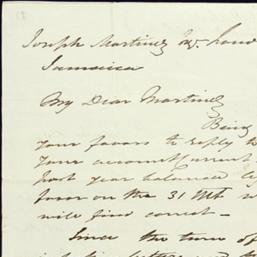 Joseph Martinez
Jamaica
My Dear Martinez
Being
Your favors to reply
Your account Current
past year balanced
favor on the 31 Ulto
will find correct -
Since the turn of